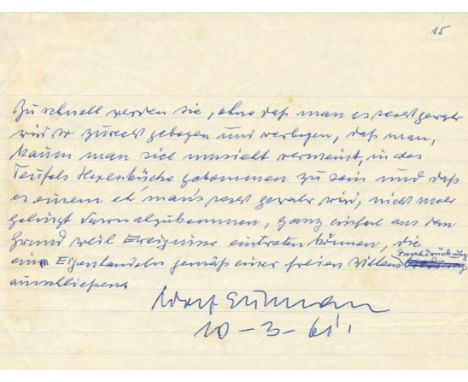 15
Zu schnell werden sie, ohne daß man es recht gewahr
wird so zurecht gebogen und verbogen, daß man,
kaum man sich umsieht vermeint, in des
Teufels Hexenküche gekommen zu sein und daß
es einem eh' man's recht gewahr wird, nicht mehr
gelingt davonzukommen, ganz einfach aus dem
Grund weil Ereignisse eintreten können, die
ein Eigenhandeln gemäß einer freien Willens
ausschließen.
10-3-61.